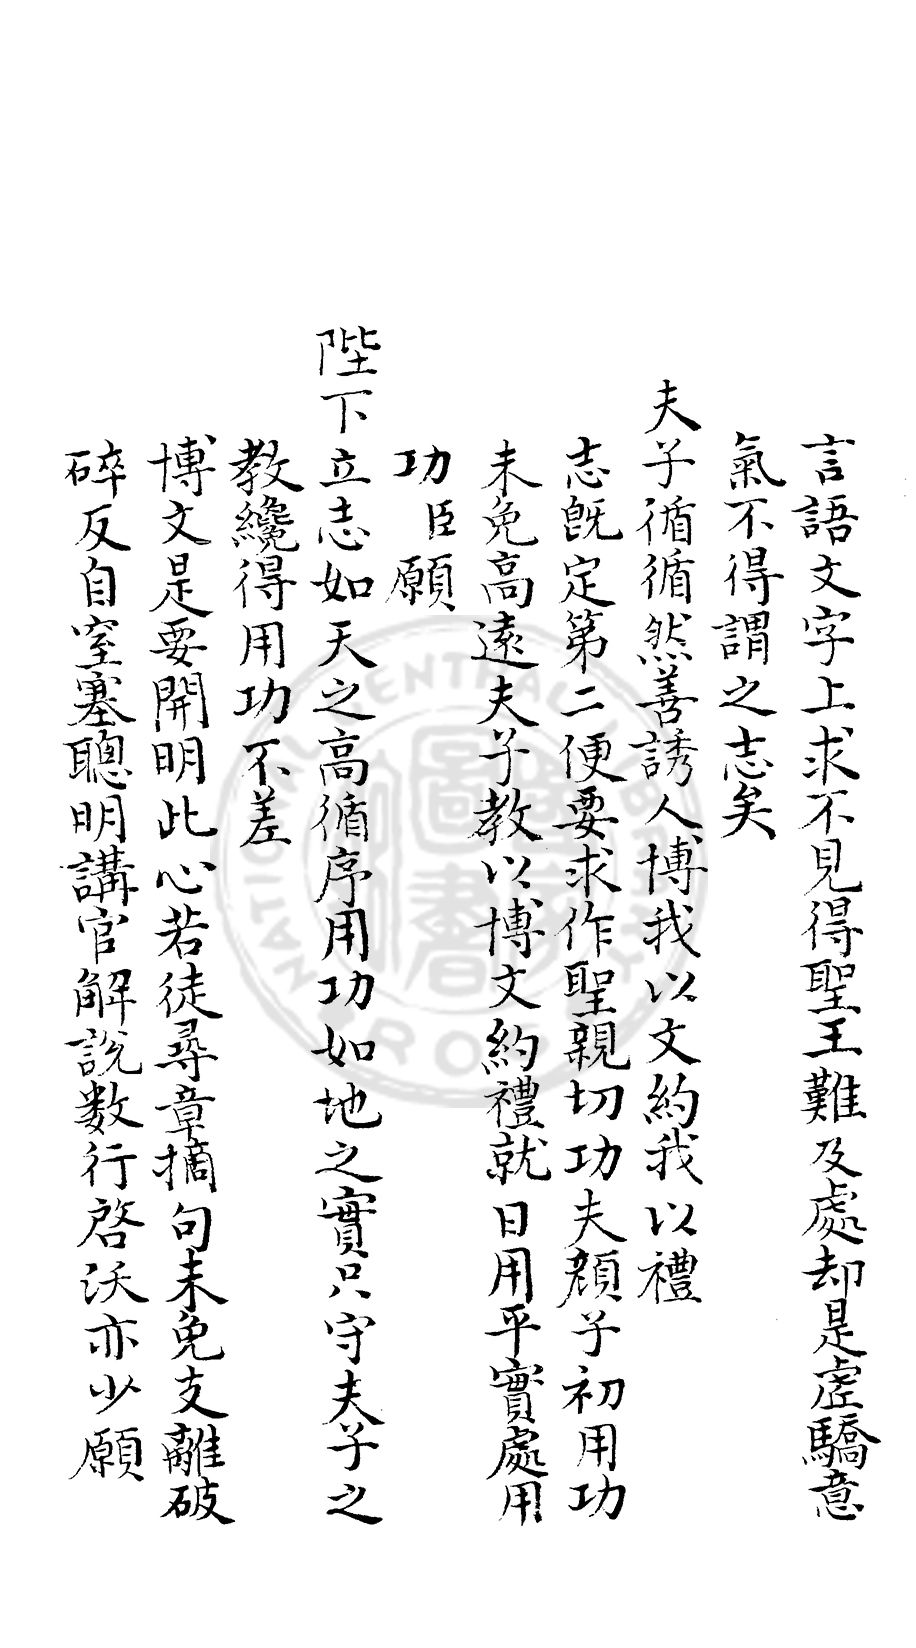 言語文字上求不見得聖王難及處却是虛驕意
氣不得謂之志矣
夫子循循然善誘人博我以文約我以禮
志旣定第二便要求作聖親切功夫顏子初用功
未免高遠夫子教以博文約禮就日用平實處用
功臣願
陛下立志如天之高循序用功如地之實只守夫子之
教纔得用功不差
博文是要開明此心若徒尋章摘句未免支離破
碎反自窒塞聰明講官解說数行啓沃亦少願
NATIONAL CENTRAL LIBRARY